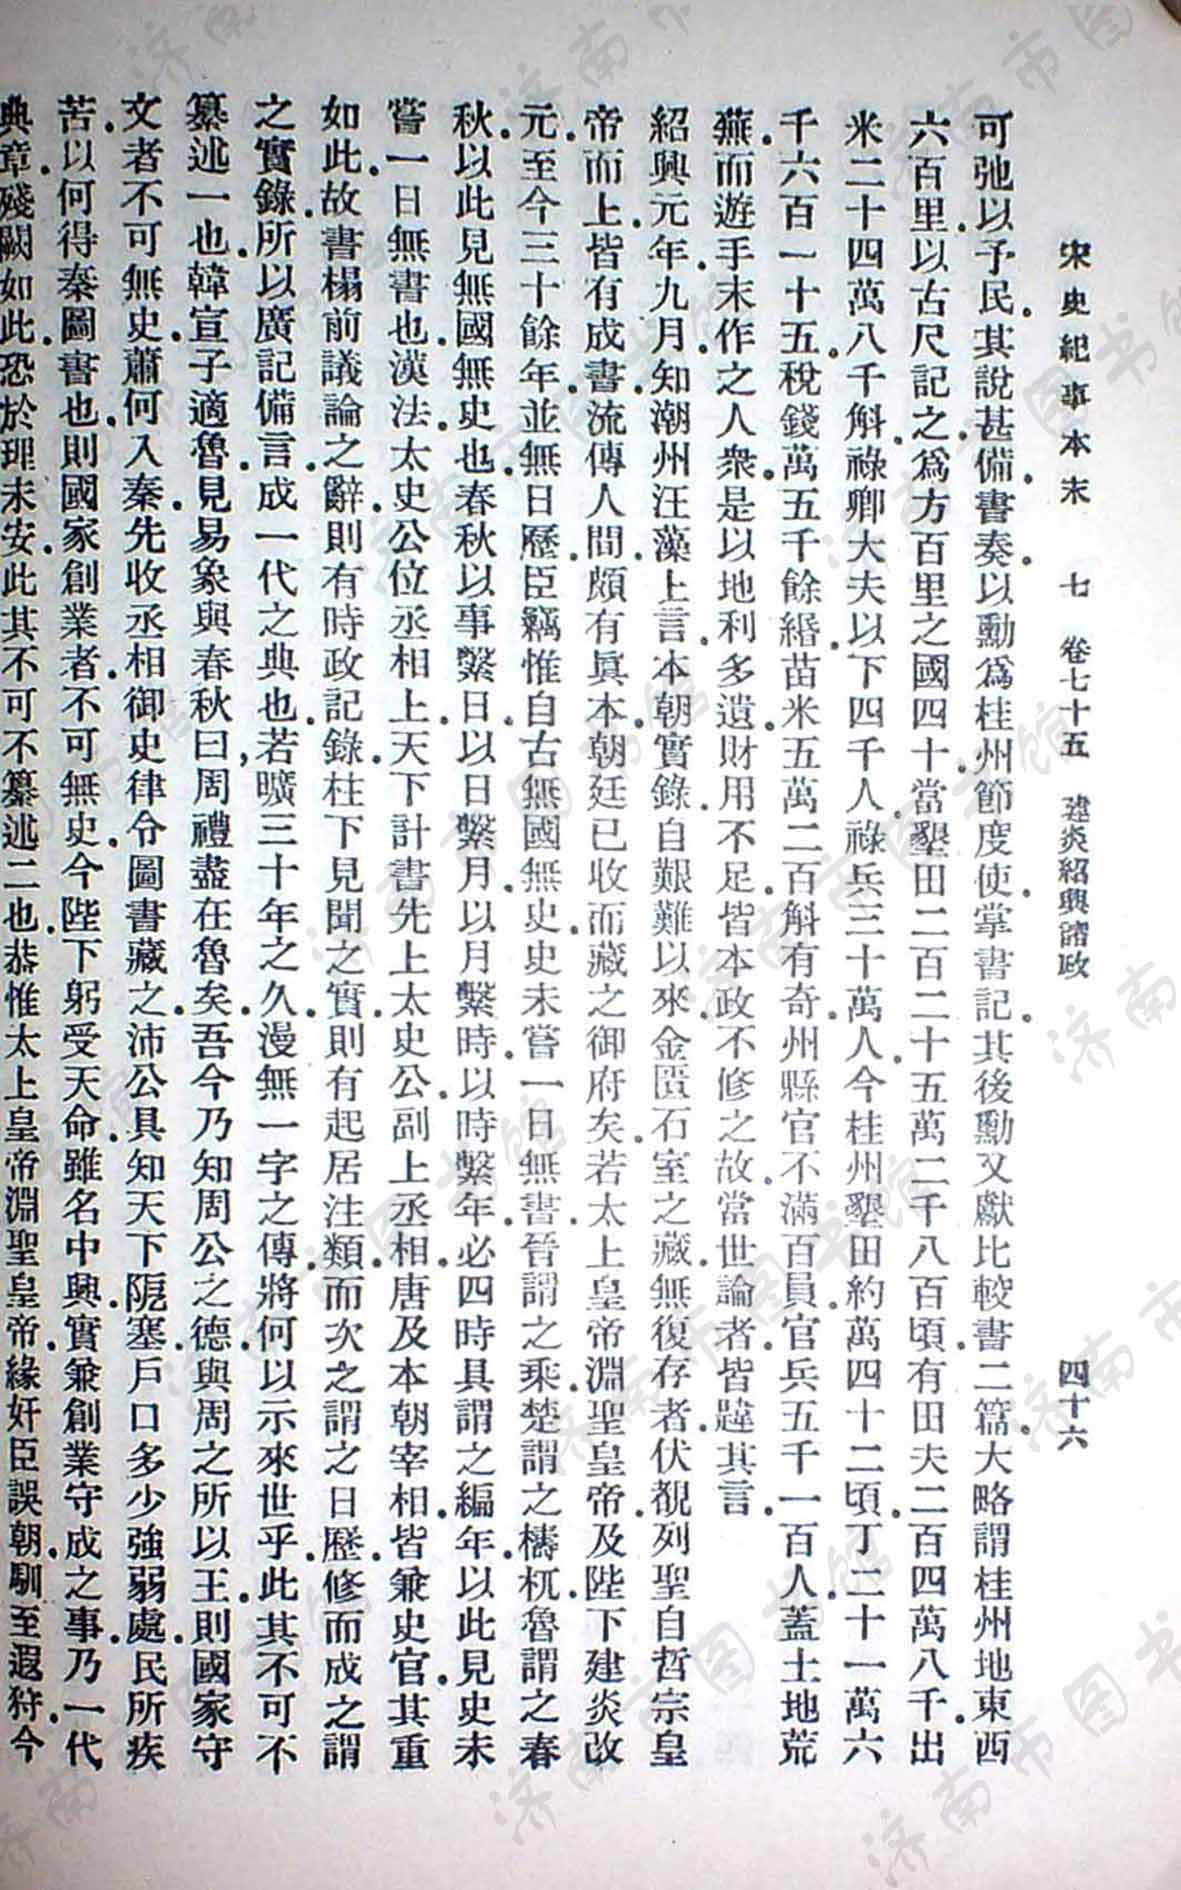 宋史紀事本末　七　卷七十五　建炎紹興諸政　四十六
可弛以予民.其說甚備.書奏.以勳爲桂州節度使.掌書記.其後勳又獻比較書二篇.大略謂桂州地東西
六百里.以古尺記之.爲方百里之國四十.當墾田二百二十五萬二千八百頃.有田夫二百四萬八千.出
米二十四萬八千斛.祿卿大夫以下四千人.祿兵三十萬人.今桂州墾田約萬四十二頃.丁二十一萬六
千六百一十五.稅錢萬五千餘緡.苗米五萬二百斛有奇.州縣官不滿百員.官兵五千一百人.蓋土地荒
蕪.而遊手末作之人衆.是以地利多遺.財用不足.皆本政不修之故.當世論者.皆韙其言.
紹興元年九月.知潮州汪藻上言.本朝實錄.自艱難以來.金匱石室之藏.無復存者.伏覩列聖自哲宗皇
帝而上.皆有成書.流傳人間.頗有眞本.朝廷已收而藏之御府矣.若太上皇帝.淵聖皇帝.及陛下建炎改
元.至今三十餘年.並無日歷.臣竊惟自古無國無史.史未嘗一日無書.晉謂之乘.楚謂之檮杌.魯謂之春
秋.以此見無國無史也.春秋以事繫日.以日繫月.以月繫時.以時繫年.必四時具謂之編年.以此見史未
嘗一日無書也.漢法.太史公位丞相上.天下計書先上太史公.副上丞相.唐及本朝宰相.皆兼史官.其重
如此.故書榻前議論之辭.則有時政記.錄柱下見聞之實.則有起居注.類而次之.謂之日歷.修而成之.謂
之實錄.所以廣記備言.成一代之典也.若曠三十年之久.漫無一字之傳.將何以示來世乎.此其不可不
纂述一也.韓宣子適魯.見易象與春秋曰,周禮盡在魯矣.吾今乃知周公之德.與周之所以王.則國家守
文者不可無史.蕭何入秦.先收丞相御史律令圖書藏之.沛公具知天下阨塞.戶口多少强弱處.民所疾
苦.以何得秦圖書也.則國家創業者.不可無史.今陛下躬受天命.雖名中興.實兼創業守成之事.乃一代
典章.殘闕如此.恐於理未安.此其不可不纂述二也.恭惟太上皇帝淵聖皇帝.緣奸臣誤朝.馴至遐狩.今